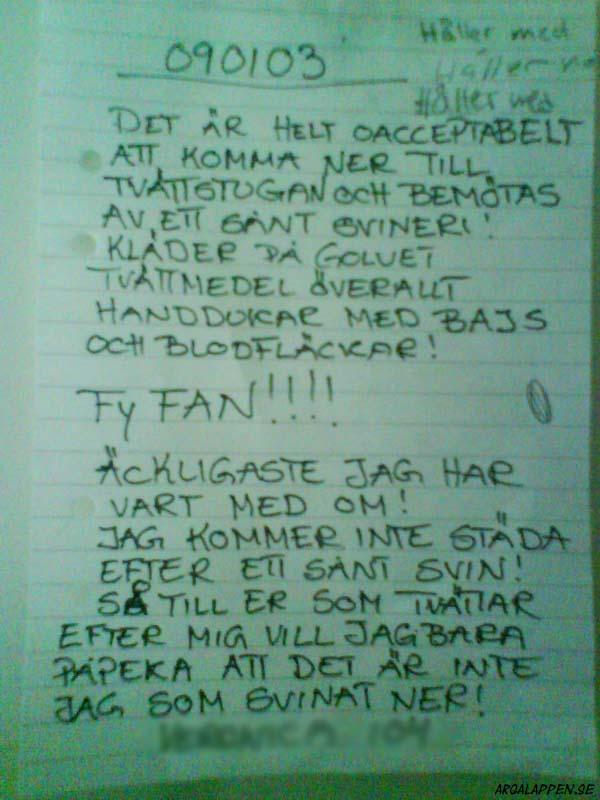 Håller med
Håller
Håller med
090103
DET ÄR HELT OACCEPTABELT
ATT KOMMA NER TILL
TVÄTTSTUGAN OCH BEMÖTAS
AV ETT SÅNT SVINERI!
KLÄDER PÅ GOLVET
TVÄTTMEDEL ÖVERALLT
HANDDUKAR MED BAJS
OCH BLODFLÄCKAR!
Fy FAN!!!!
ÄCKLIGASTE JAG HAR
VART MED OM!
JAG KOMMER INTE STÄDA
EFTER ETT SÅNT SVIN!
SÅ TILL ER SOM TVÄTTAR
EFTER MIG VILL JAG BARA
PÅPEKA ATT DET ÄR INTE
JAG SOM SVINAT NER!
ARGALAPPEN.SE